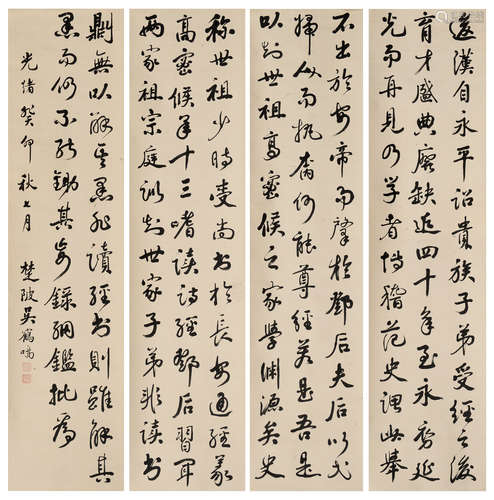 後漢自永平詔貴族子弟受經之後
育才盛典廢缺近四十年至永寧延
光而再見乃學者博稽范史謂此舉
不出於安帝而肇於鄧后夫后以一
婦人而執奮何能尊經若是吾是
以知世祖高密侯之家學淵源矣史
称世祖少時受尚書於長安通經義
高密候年十三嗜读詩經鄧后習耳
兩家祖宗庭訓知世家子弟非读書
鼎無以解其愚非讀經書則雖解其
愚而仍不能鋤其 錄綱鑑批爲
光緒癸卯秋七月 楚陂吳鶴鳴